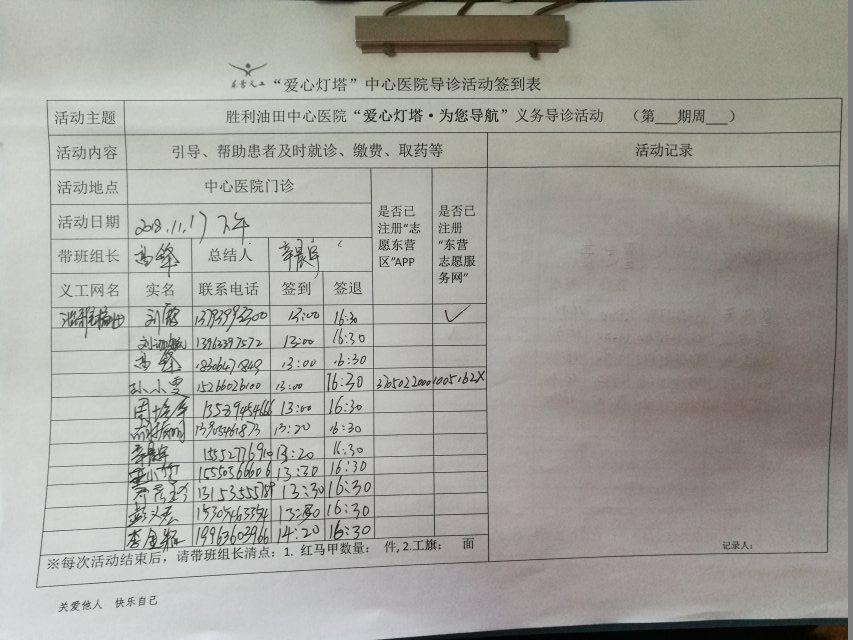 东营义工
“爱心灯塔”中心医院导诊活动签到表
活动主题 胜利油田中心医院“爱心灯塔·为您导航”义务导诊活动 （第___期周___）
活动内容 引导、帮助患者及时就诊、缴费、取药等 活动记录
活动地点 中心医院门诊 是否已注册“志愿东营区”APP 是否已注册“东营志愿服务网”
活动日期 2018.11.17 下午
带班组长 高峰 总结人
义工网名 实名 联系电话 签到 签退
刘霞 13793993300 13:00 16:30 ✓
13963397572 13:00 16:30
高峰 18306471849 13:00 16:30
孙小雯 15266026100 13:00 16:30
13:00 16:30
13905461873 13:20 16:30
15552776910 13:20 16:30
15550366606 13:30 16:30
13153555789 13:30 16:30
15305463354 13:30 16:30
19963603966 14:20 16:30
※每次活动结束后，请带班组长清点：1. 红马甲数量： 件, 2.工旗： 面
记录人:
关爱他人 快乐自己